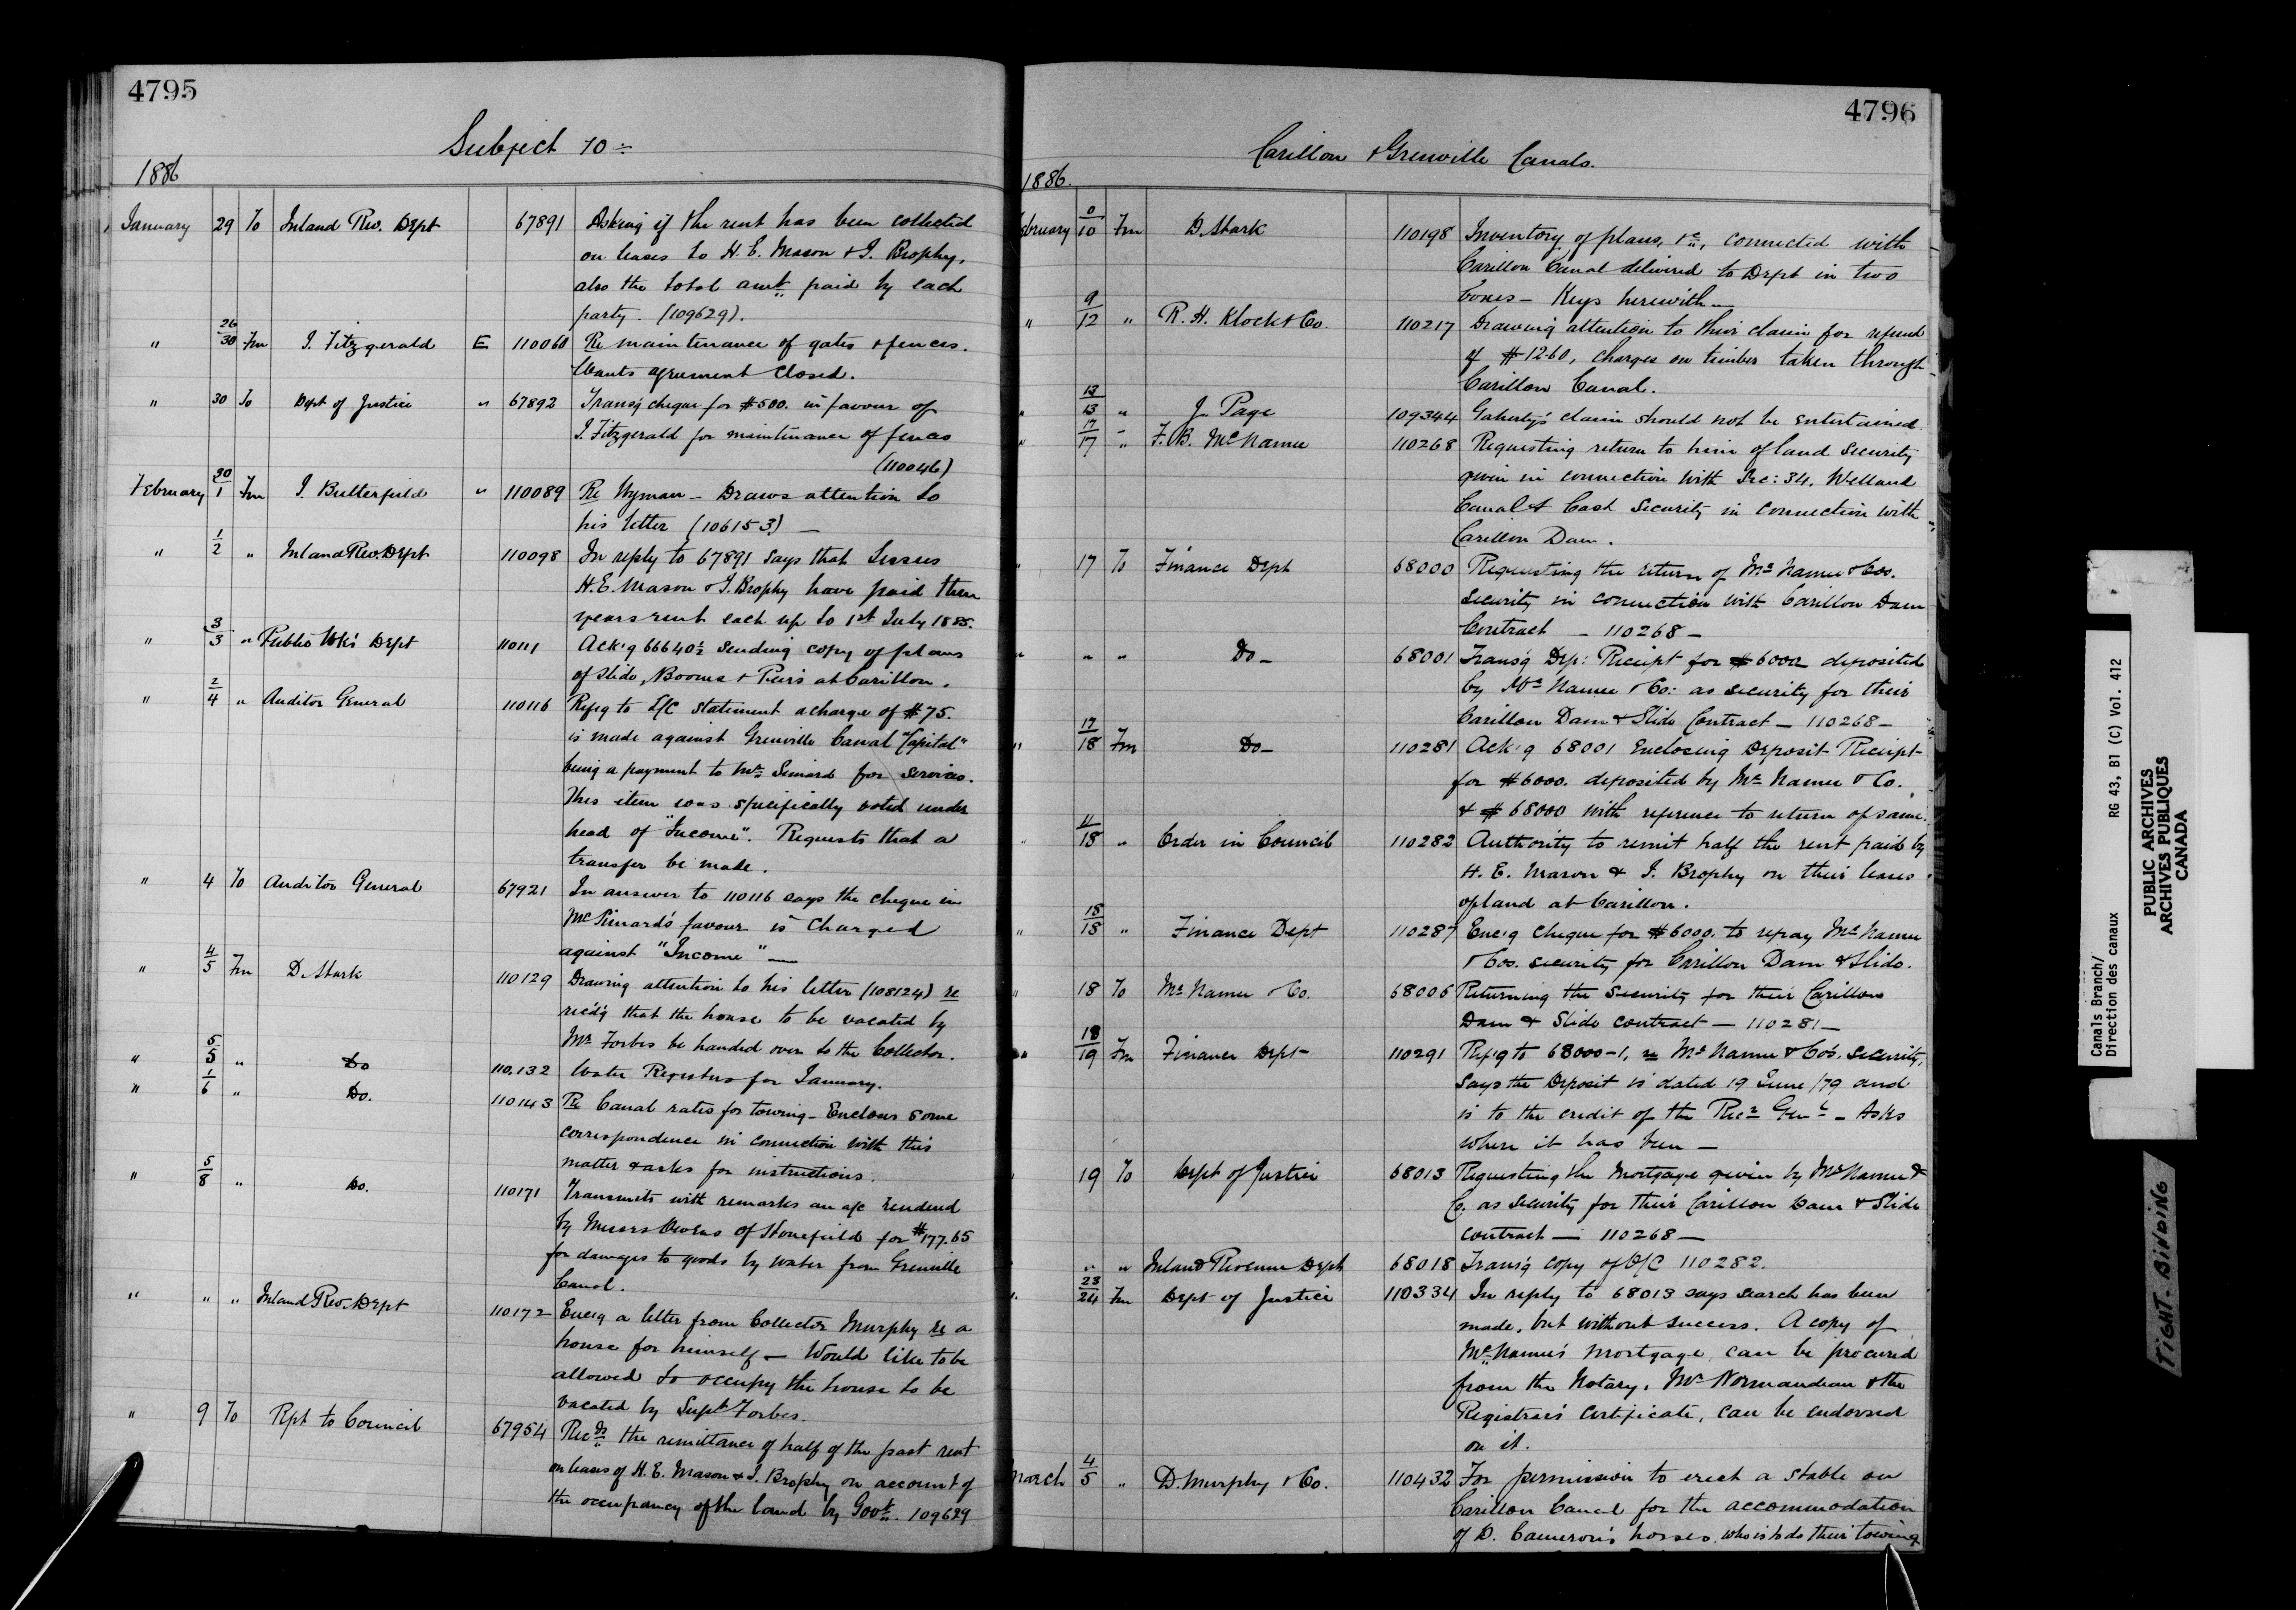 4795
Subject 10
1886
January 29 To Inland Rev. Dept 67891 Asking if the rent has been collected
on leases to H. E. Mason & J. Brophy,
also the total amt. paid by each
party. (109629).
" 26/30 Fm J. Fitzgerald E 110060 Re maintenance of gates & fences.
Wants agreement closed.
" 30 To Dept of Justice " 67892 Trans'g cheque for $500. in favour of
J. Fitzgerald for maintenance of fences
(110046)
February 30/1 Fm J. Butterfield " 110089 Re Wyman - Draws attention to
his letter (106153) —
" 1/2 " Inland Rev. Dept 110098 In reply to 67891 says that Lessees
H. E. Mason & J. Brophy have paid their
years rent each up to 1st July 1885.
" 3/3 " Public Wk's Dept 110111 Ack'g 66640½ sending copy of plans
of Slide, Booms & Piers at Carillon.
" 2/4 " Auditor General 110116 Ref'g to L/C statement a charge of $75.
is made against Grenville Canal "Capital"
being a payment to Mr. for services.
This item was specifically voted under
head of "Income". Requests that a
transfer be made.
" 4 To Auditor General 67921 In answer to 110116 says the cheque in
favour is charged
against "Income" —
" 4/5 Fm D. Stark 110129 Drawing attention to his letter (108124) re
rec'd'g that the house to be vacated by
Mr. Forbes be handed over to the Collector.
" 5/5 " Do 110,132 Water Registers for January.
" 1/6 " Do. 110143 Re Canal rates for towing - Encloses some
correspondence in connection with this
matter & asks for instructions.
" 5/8 " Do. 110171 Transmits with remarks an a/c rendered
by Messrs Owens of Stonefield for $177.65
for damages to goods by water from Grenville
Canal.
" " " Inland Rev. Dept 110172 Enc'g a letter from Collector Murphy re a
house for himself - Would like to be
allowed to occupy the house to be
vacated by Supt. Forbes.
" 9 To Rpt to Council 67954 the remittance of half of the past rent
on leases of H. E. Mason & J. Brophy on account of
the occupancy of the land by Govt. 109629
4796
Carillon & Grenville Canals.
1886.
February 8/10 Fm D. Stark 110198 Inventory of plans, &c, connected with
Carillon Canal delivered to Dept in two
boxes - Keys herewith —
" 9/12 " R. H. Klock & Co. 110217 Drawing attention to their claim for refund
of $12.60, charges on timber taken through
Carillon Canal.
" 13/13 " J. Page 109344 Gaherty's claim should not be entertained
" 17/17 " F. B. McNamee 110268 Requesting return to him of land security
given in connection with Sec: 34, Welland
Canal & Cash Security in connection with
Carillon Dam.
" 17 To Finance Dept 68000 Requesting the return of McNamee & Cos.
security in connection with Carillon Dam
Contract — 110268 —
" " " Do — 68001 Trans'g Dep: Receipt for $6000 deposited
by McNamee & Co: as security for their
Carillon Dam & Slide Contract — 110268 —
" 17/18 Fm Do — 110281 Ack'g 68001 enclosing Deposit Receipt
for $6000. deposited by McNamee & Co.
& # 68000 with reference to return of same.
" 11/18 " Order in Council 110282 Authority to remit half the rent paid by
H. E. Mason & J. Brophy on their leases
of land at Carillon.
" 18/18 " Finance Dept 110287 Enc'g cheque for $6000. to repay McNamee
& Cos. security for Carillon Dam & Slide.
" 18 To McNamee & Co. 68006 Returning the security for their Carillon
Dam & Slide contract — 110281 —
" 18/19 Fm Finance Dept 110291 Ref'g to 68000-1, re McNamee & Co's. security,
says the Deposit is dated 19 June /79 and
is to the credit of the Recr Genl - Asks
where it has been —
" 19 To Dept of Justice 68013 Requesting the Mortgage given by McNamee &
Co. as security for their Carillon Dam & Slide
contract — 110268 —
" " Inland Revenue Dept 68018 Trans'g copy of O/C 110282.
" 23/24 Fm Dept of Justice 110334 In reply to 68013 says search has been
made, but without success. A copy of
McNamee's Mortgage, can be procured
from the Notary, Mr Normandeau & the
Registrar's Certificate, can be endorsed
on it.
March 4/5 " D. Murphy & Co. 110432 For permission to erect a stable on
Carillon Canal for the accommodation
of D. Cameron's horses, who is to do their towing
Canals Branch/ RG 43, B1 (C) Vol. 412
Direction des canaux
PUBLIC ARCHIVES
ARCHIVES PUBLIQUES
CANADA
TIGHT-BINDING